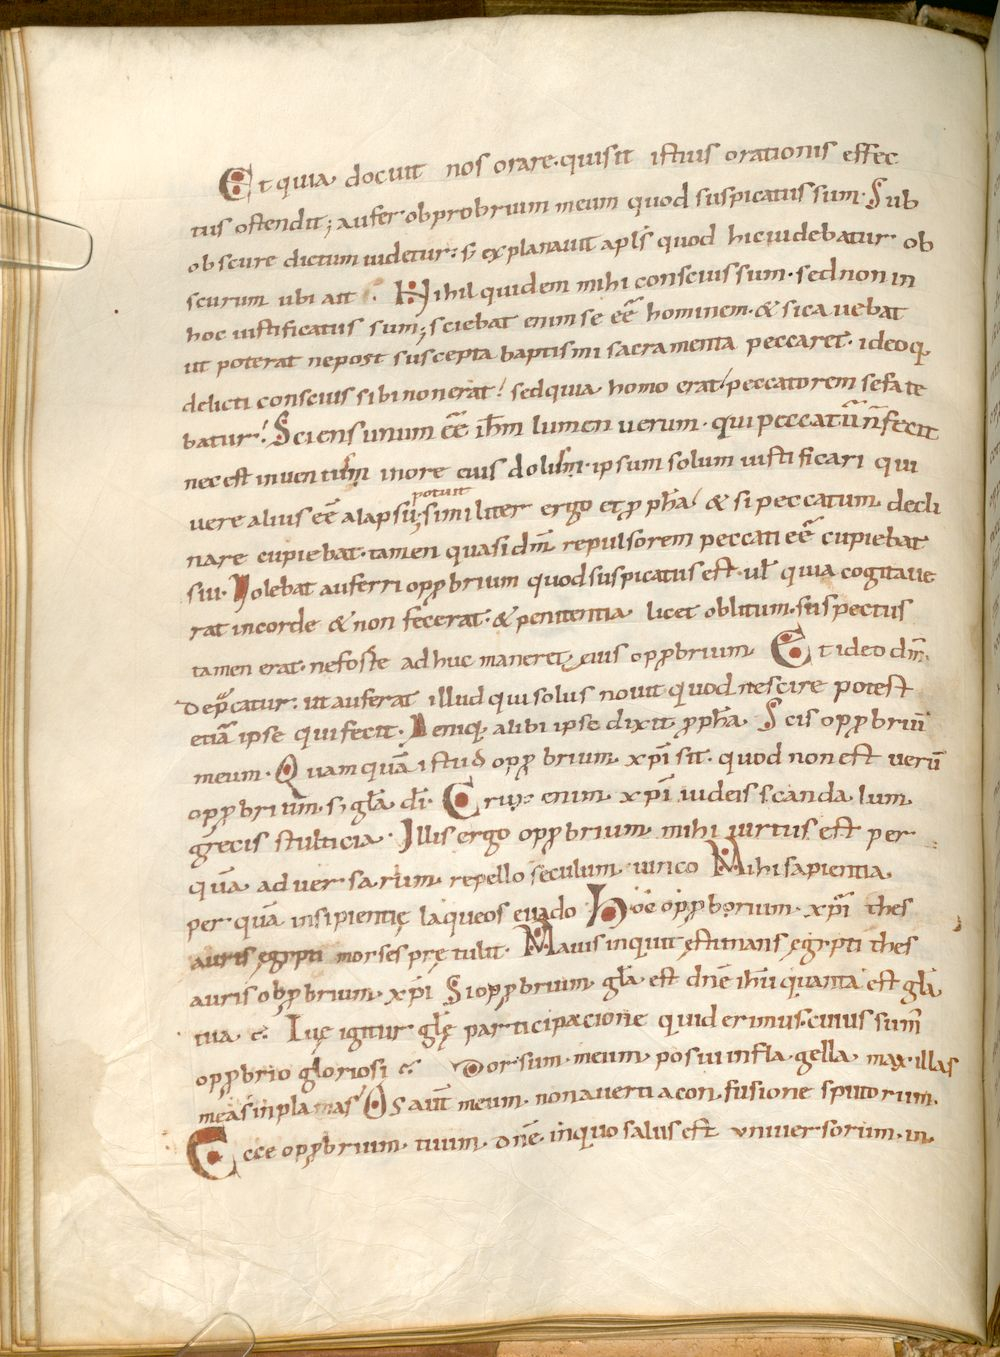 Et quia docuit nos orare. quisit istius orationis effec
tus ostendit; aufer obprobrium meum quod suspicatus sum. Sub
obscure dictum uidetur. s; explanauit apls quod hic uidebatur ob
scurum ubi ait. Nihil quidem mihi conscius sum. sed non in
hoc iustificatus sum; sciebat enim se eē hominem. & sic auebat
ut poterat ne post suscepta baptismi sacramenta peccaret. ideoq;
delicti conscius sibi non erat! sed quia homo erat peccatorem se fate
batur! Sciens unum eē ihm lumen uerum. qui peccatū n̄ fecit
nec est inuentum in ore eius dolum. ipsum solum iustificari qui
potuit
uere alius eē a lapsu; similiter ergo et ꝓpha & si peccatum decli
nare cupiebat. tamen quasi dm̄ repulsorem peccati eē cupiebat
sui. Nolebat auferri opꝓbrium quod suspicatus est. ul quia cogitaue
rat in corde & non fecerat. & penitentia licet oblitum. suspectus
tamen erat. ne foste adhuc maneret eius opꝓbrium. Et ideo dm̄.
depcatur. ut auferat illud qui solus nouit quod nescire potest
etiā ipse qui fecit. Deniq; alibi ipse dixit ꝓpha. Scis opꝓbriū
meum. Quam quā istud opꝓbrium xp̄i sit. quod non est uerū
opꝓbrium. s; gla dī. Crux enim xp̄i iudeis scandalum.
grecis stulticia. Illis ergo opꝓbrium mihi uirtus est per
quā aduersarium repello seculum uinco Mihi sapientia
per quā insipientię laqueos euado Hoc opꝓborium xp̄i thes
auris egypti morses prętulit. Mauis inquit ęstimans ęgypti thes
auris obꝓbrium xp̄i Si opꝓbrium gla est dnē ihū quanta est gla
tua ē. Iuę igitur glę participacione quid erimus. cuius sum̄
opꝓbrio gloriosi ē. Dorsum meum posui in fla.gella maxillas
meas in plamas Os aut̄ meum non auerti a con.fusione sputorum.
Ecce opꝓbrium tuum dnē in quo salus est uniuersorum. in